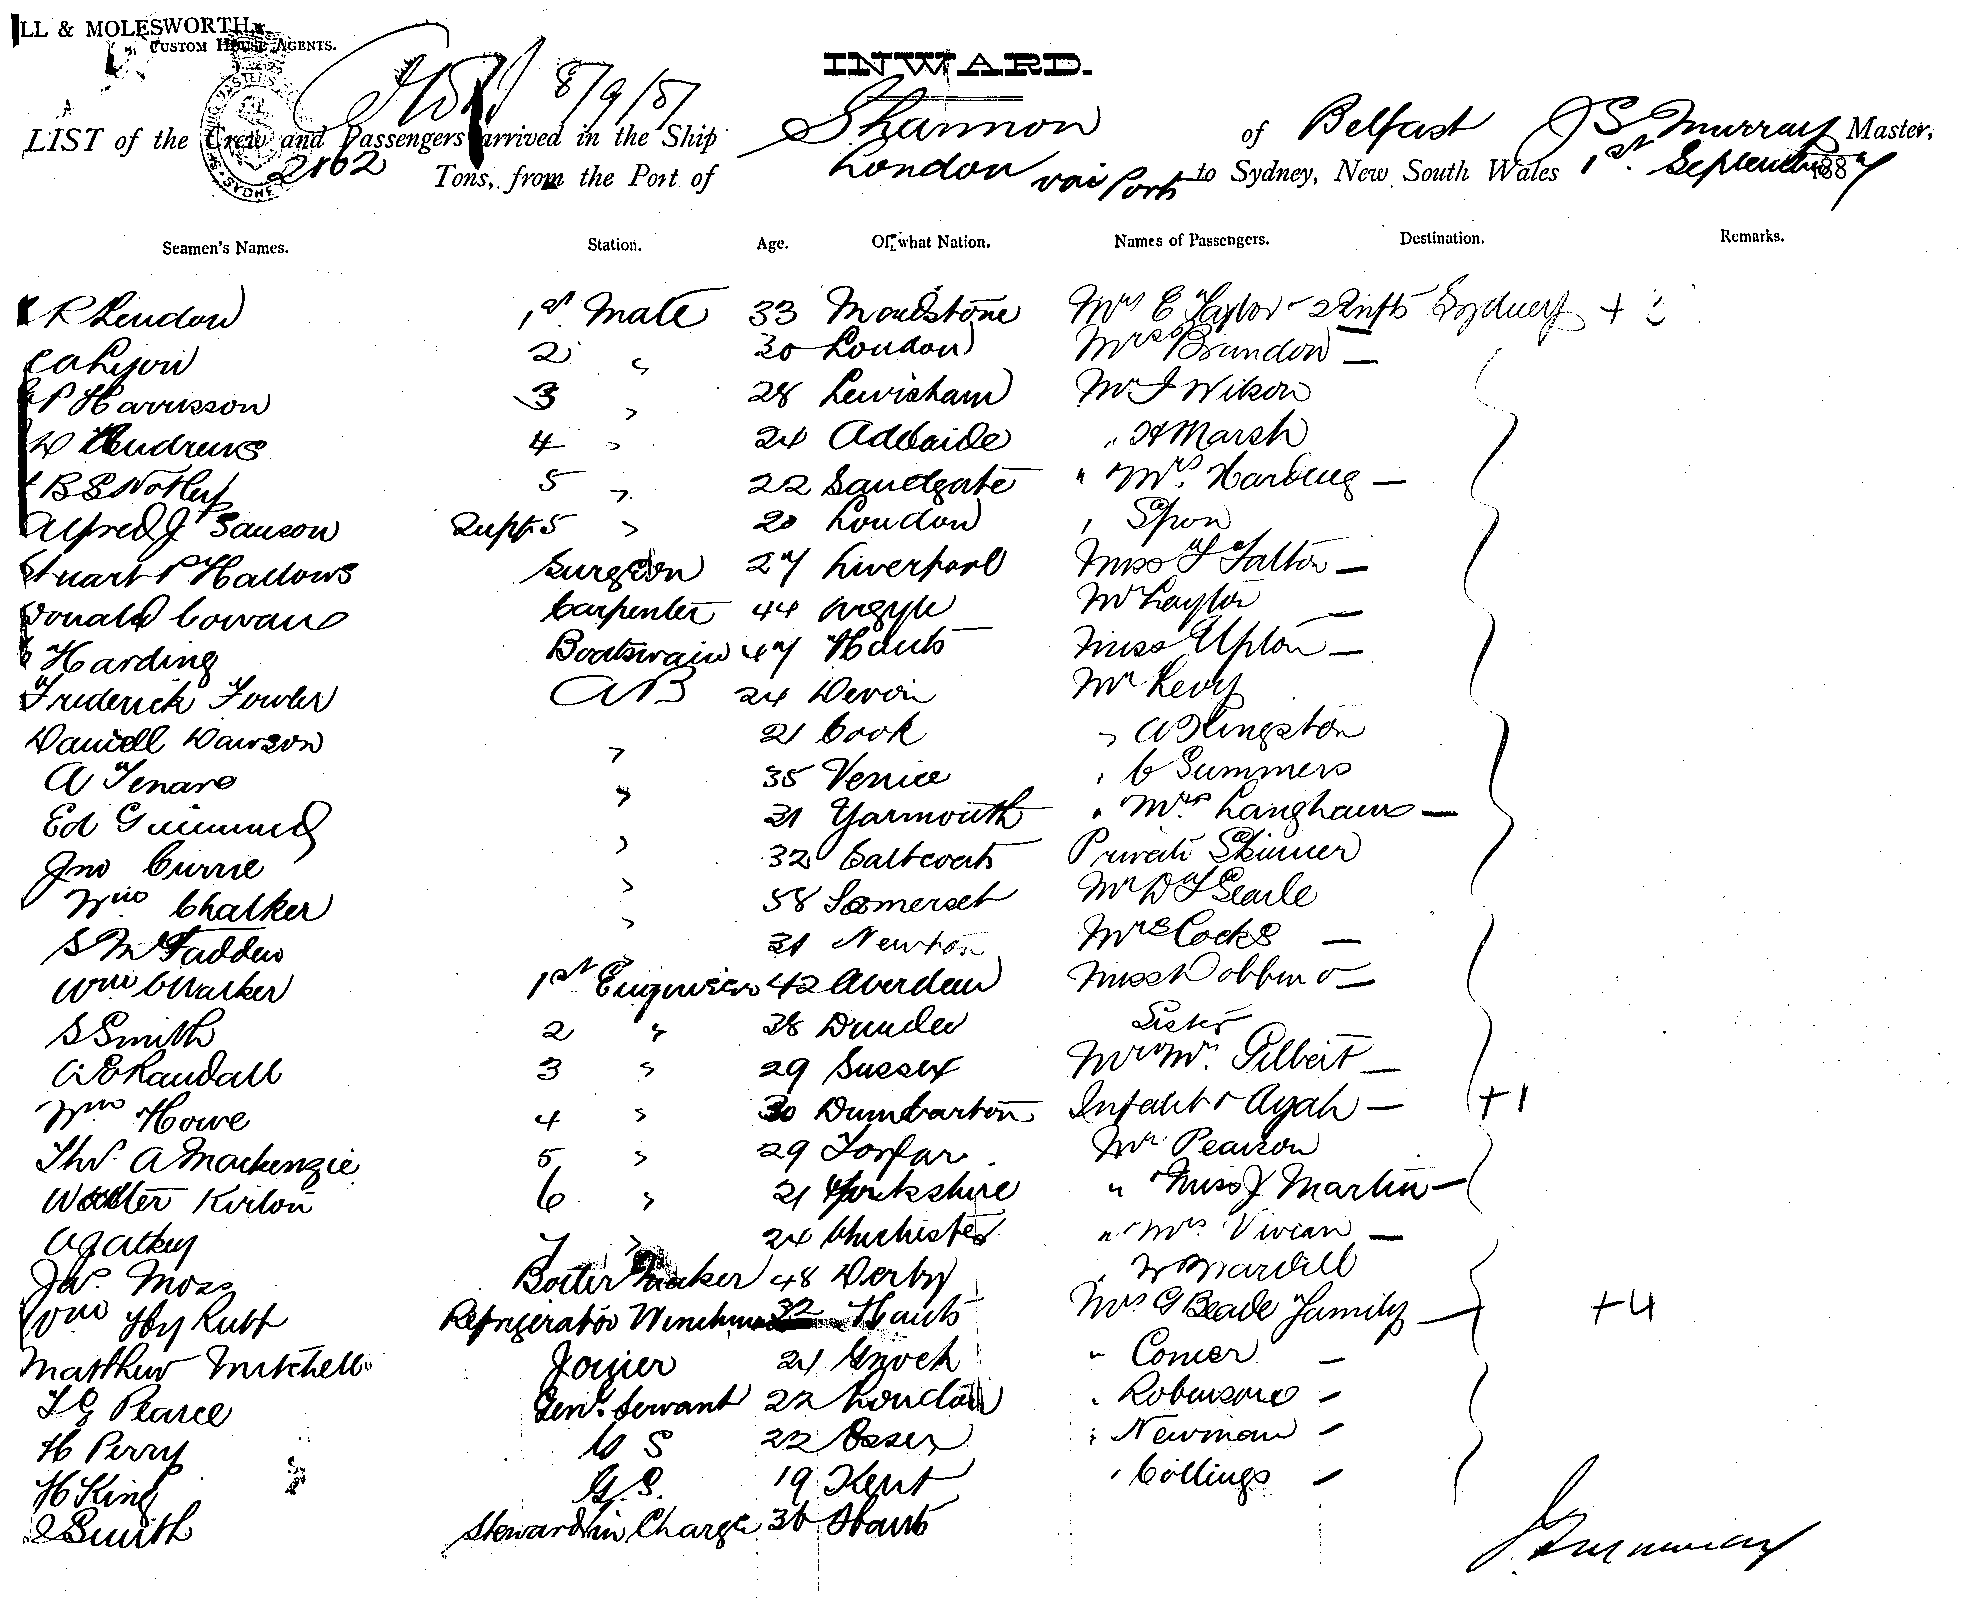 LL & MOLESWORTH,
CUSTOM HOUSE AGENTS.
INWARD.
8/9/87
LIST of the Crew and Passengers arrived in the Ship Shannon of Belfast J S Murray Master,
2162 Tons, from the Port of London via Ports to Sydney, New South Wales 1st September 1887
Seamen's Names. Station. Age. Of what Nation. Names of Passengers. Destination. Remarks.
R Lendon 1st Mate 33 Maidstone Mrs E Taylor - 2 Infts Sydney +
C A Lyon 2 " 30 London Mrs Brandon —
P Harrisson 3 " 28 Lewisham Mr J Wilson
W Andrews 4 " 24 Adelaide " H Marsh
B S Notley 5 " 22 Sandgate " Mrs Harding —
Alfred J Sanson Supy 5 " 20 London " Spon
Stuart P Hallows Surgeon 27 Liverpool Miss F Talton —
Donald Cowan Carpenter 44 Argyle Mr Laylor —
Harding Boatswain 47 Hants Miss Upton —
Frederick Fowler AB 24 Devon Mr Levy
Daniell Dawson " 21 Cook " A Kingston
A Tenaro " 35 Venice " C Summers
Ed " 21 Yarmouth " Mrs Langhans —
Jno Currie " 32 Saltcoats Private Skinner
Wm Chalker " 58 Somerset Mr D F Searle
S McFadden 21 Newton Mrs Cocks —
Wm C Walker 1st Engineer 42 Aberdeen Miss Dobbin —
S Smith 2 " 38 Dundee Sister
A E Randall 3 " 29 Sussex Mr & Mrs Gilbert —
Wm Howe 4 " 30 Dumbarton Infant & Ayah — +1
Thos. A Mackenzie 5 " 29 Forfar Mr Pearson
Walter Kirton 6 " 21 Yorkshire " Miss J Martin —
A J Atkey 7 " 24 Chichester " Mrs Vivian —
Jas. Moss Boiler Maker 48 Derby " W Mardell
Wm Hy Rutt Refrigerator Winchman 32 Hants Mrs G Beade Family — +4
Matthew Mitchell Joiner 21 " Comer —
F G Pearce Genl. Servant 22 London " Robinson —
H Perry G S 22 Essex " Newman —
H King G.S. 19 Kent " Collings —
Smith Steward in Charge 36 Hants
J S Murray